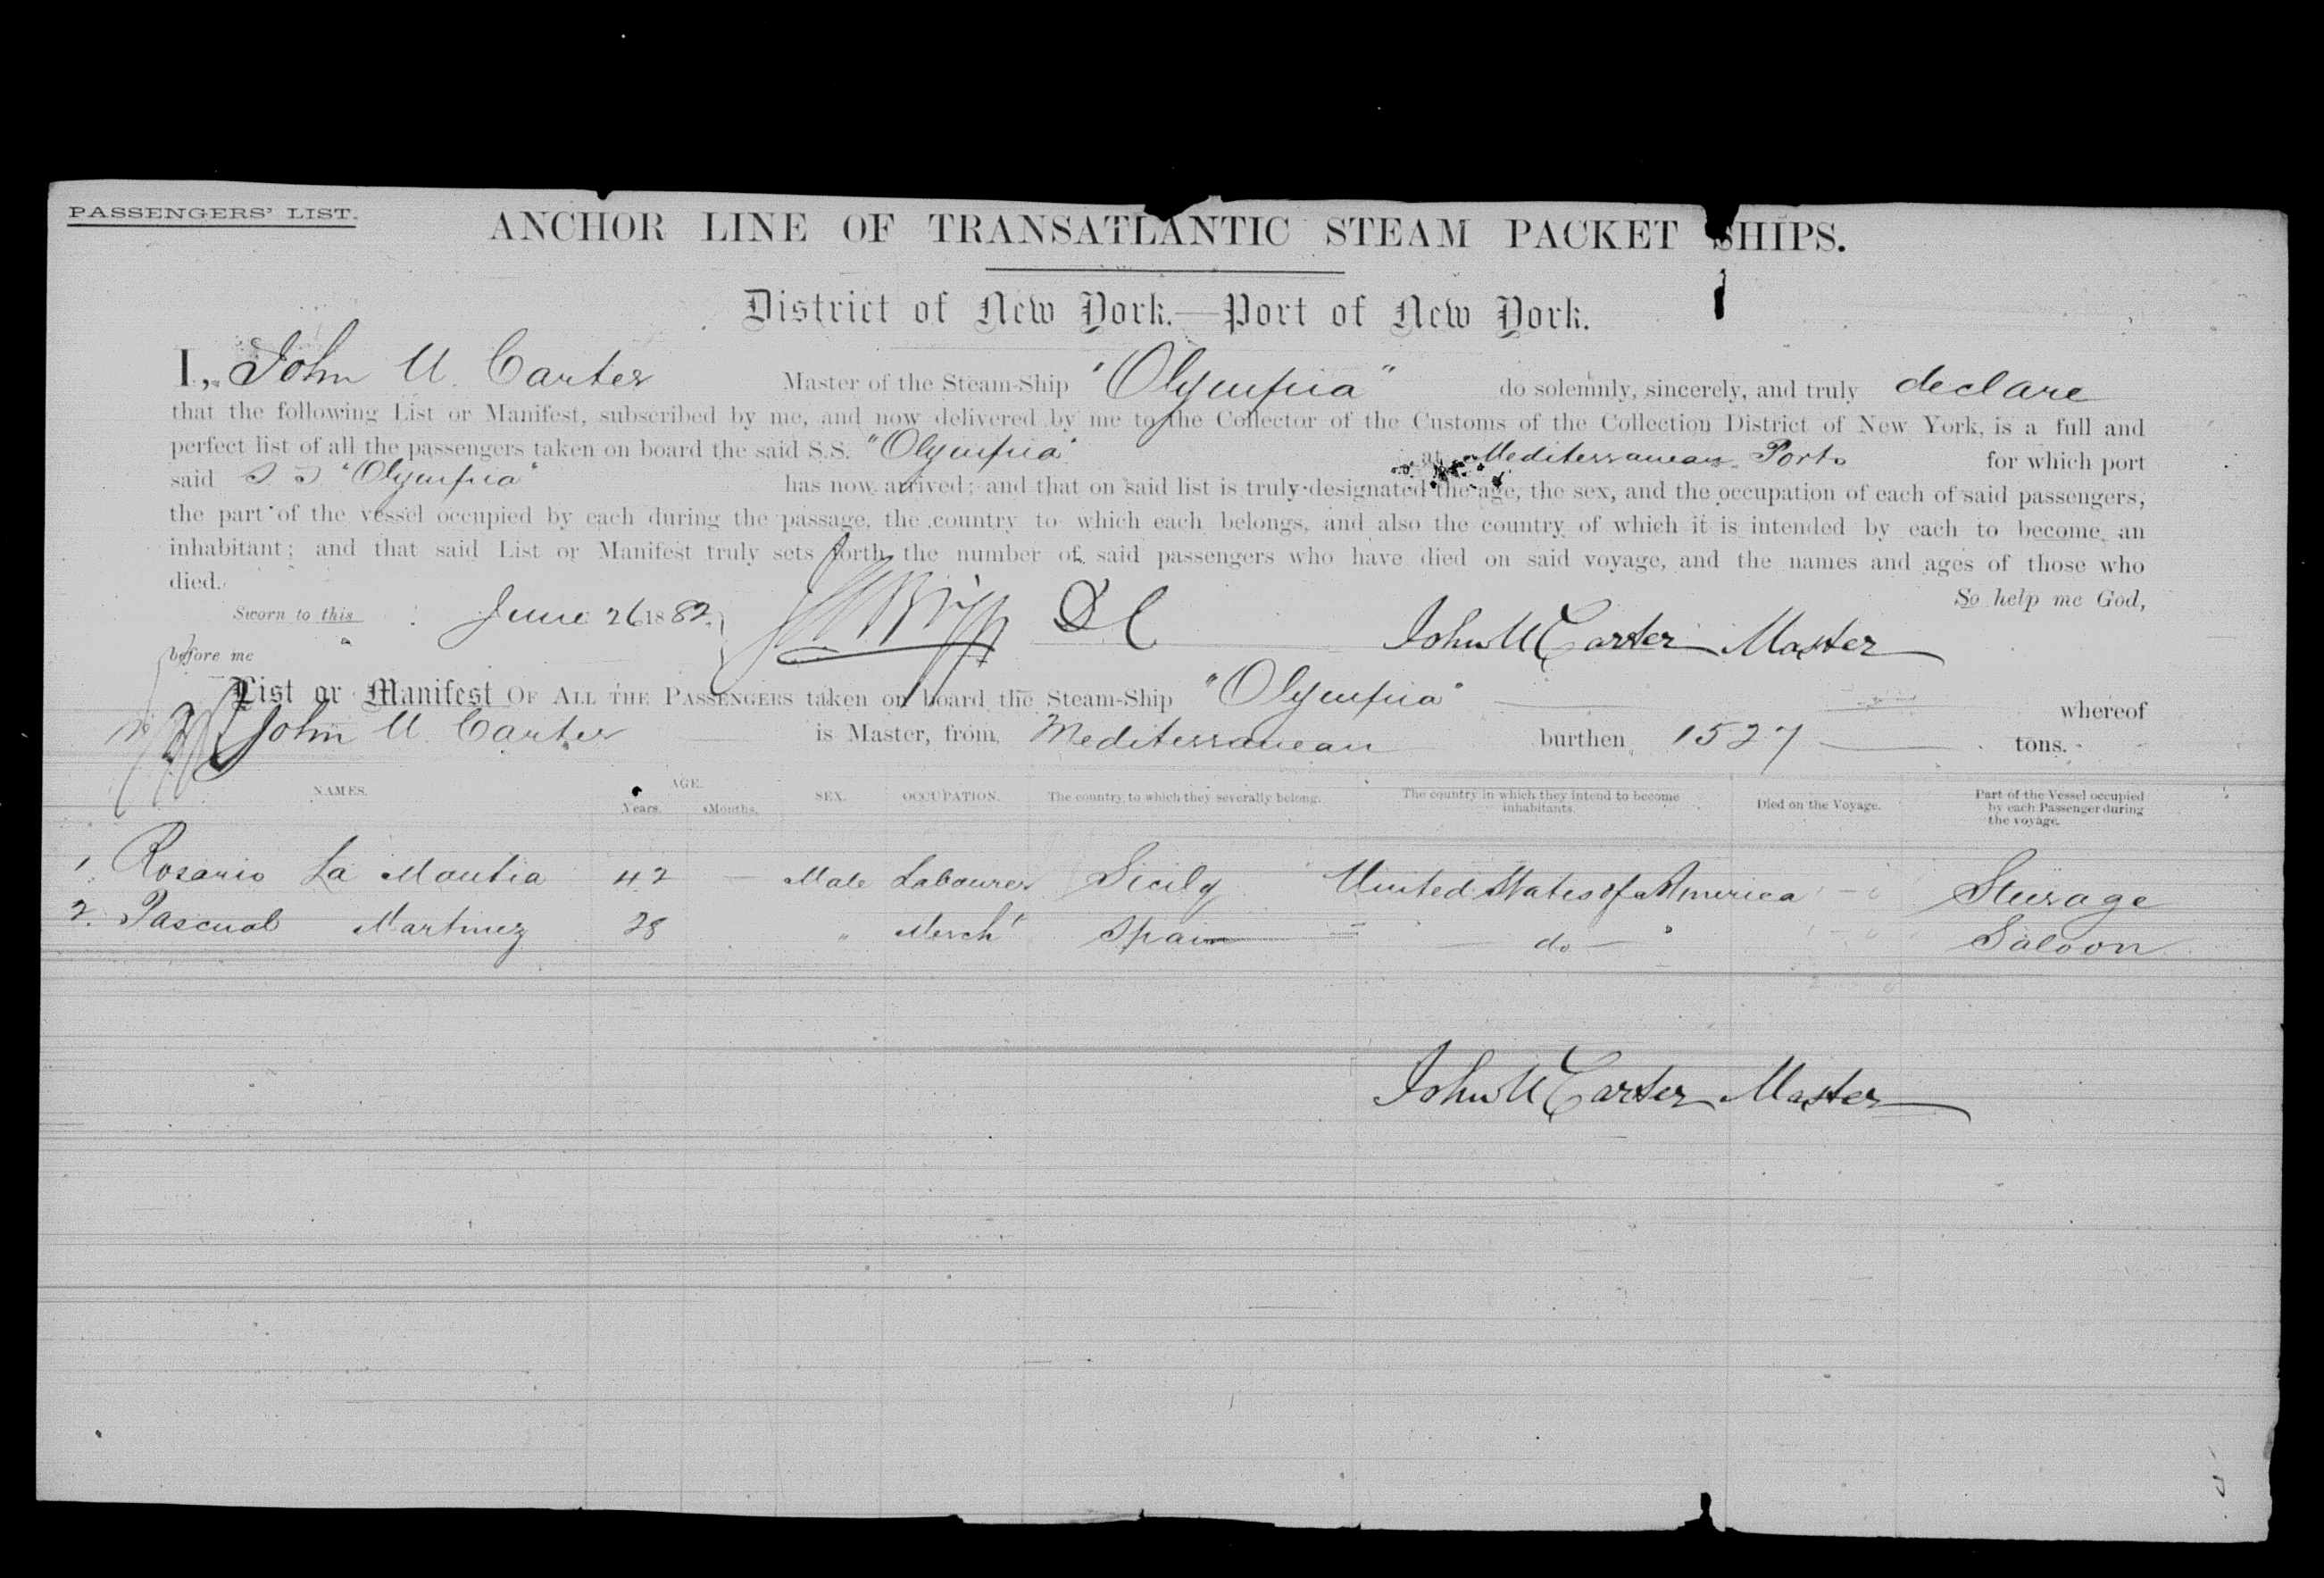 PASSENGERS' LIST.
ANCHOR LINE OF TRANSATLANTIC STEAM PACKET SHIPS.
District of New York.—Port of New York.
I, John U. Carter Master of the Steam-Ship "Olympia" do solemnly, sincerely, and truly declare
that the following List or Manifest, subscribed by me, and now delivered by me to the Collector of the Customs of the Collection District of New York, is a full and
perfect list of all the passengers taken on board the said S.S. "Olympia" at Mediterranean Ports for which port
said S S "Olympia" has now arrived; and that on said list is truly designated the age, the sex, and the occupation of each of said passengers,
the part of the vessel occupied by each during the passage, the country to which each belongs, and also the country of which it is intended by each to become an
inhabitant; and that said List or Manifest truly sets forth the number of said passengers who have died on said voyage, and the names and ages of those who
died. So help me God,
Sworn to this June 26 1882 D C John U Carter Master
before me
List or Manifest OF ALL THE PASSENGERS taken on board the Steam-Ship "Olympia" whereof
John U. Carter is Master, from Mediterranean burthen 1527 tons.
NAMES. AGE. Years. Months. SEX. OCCUPATION. The country to which they severally belong. The country in which they intend to become inhabitants. Died on the Voyage. Part of the Vessel occupied by each Passenger during the voyage.
1. Rosario La Mantia 42 — Male Labourer Sicily United States of America Steerage
2. Pascual Martinez 28 " Mercht Spain — do — Saloon
John U Carter Master